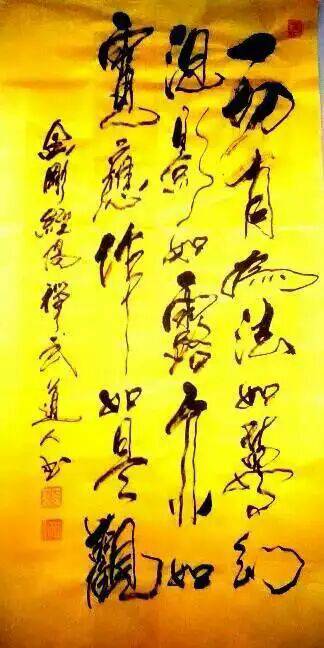 一切有為法如夢幻
泡影如露亦如
電應作如是觀
金剛經偈禪武道人書